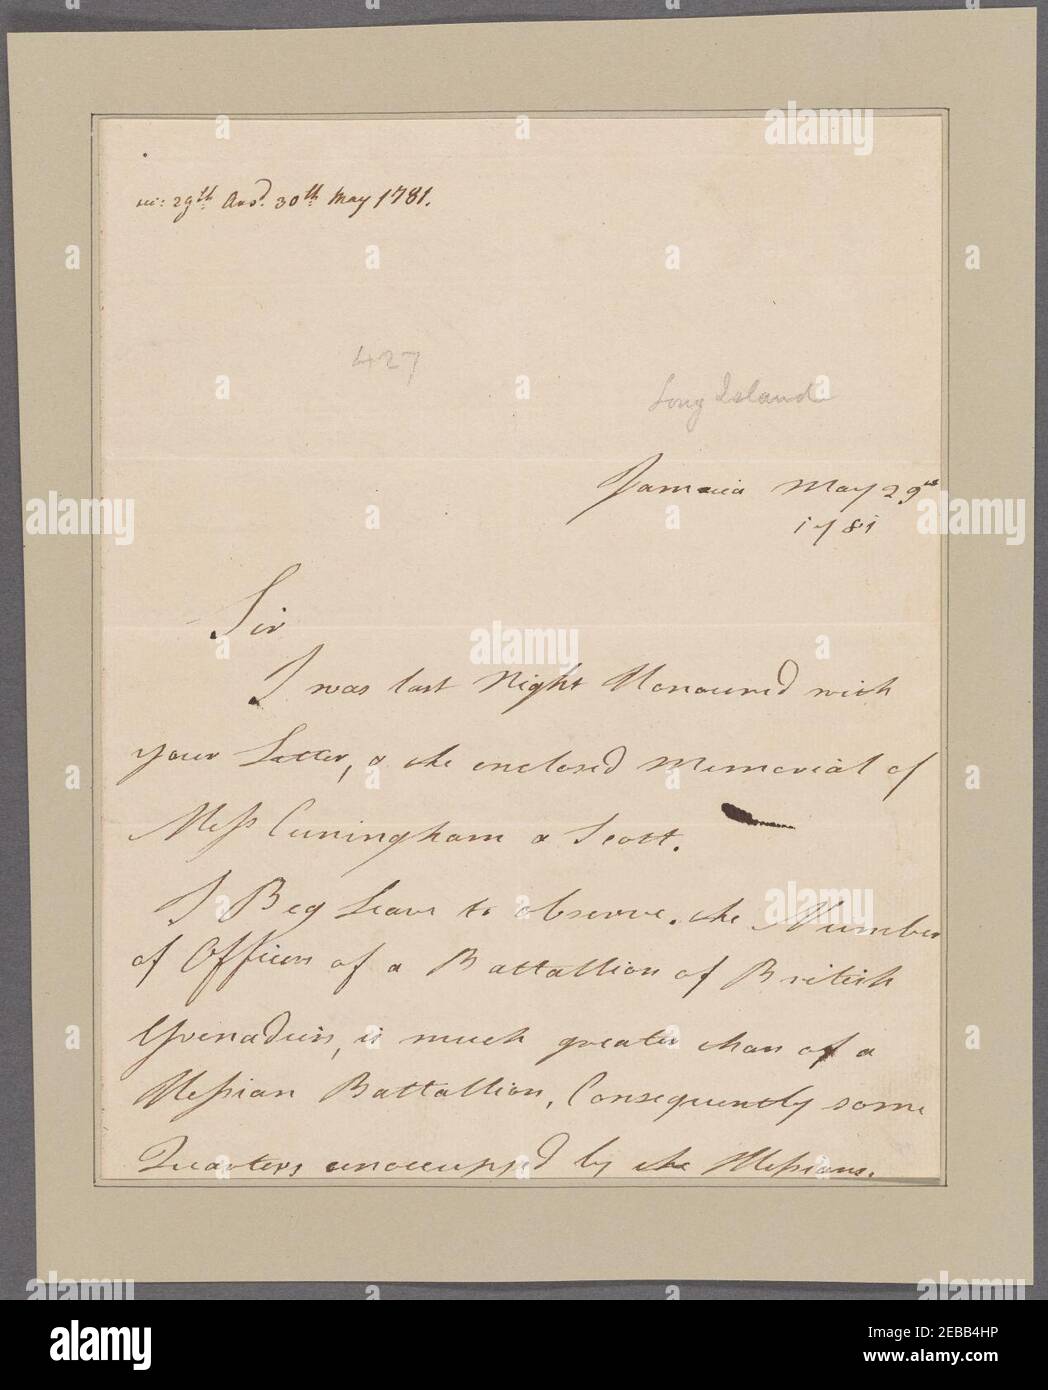 rec: 29th Ansd. 30th May 1781.
427
Long Island
Jamaica May 29th
1781
Sir
I was last Night Honoured with
your Letter, & the enclosed Memorial of
Mess Cuningham & Scott.
I Beg Leave to observe, the Number
of Officers of a Battallion of British
Grenadiers, is much greater than of a
Hessian Battallion, Consequently some
Quarters unoccupyed by the Hessians.
alamy
Image ID: 2EBB4HP
www.alamy.com